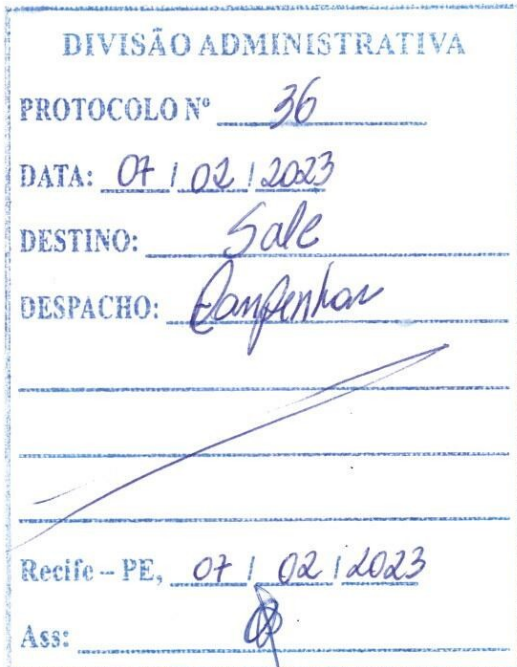 DIVISÃO ADMINISTRATIVA
PROTOCOLO Nº 36
DATA: 07 / 02 / 2023
DESTINO: Sale
DESPACHO:
Recife – PE, 07 / 02 / 2023
Ass: